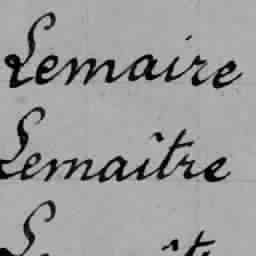 Lemaire
Lemaître